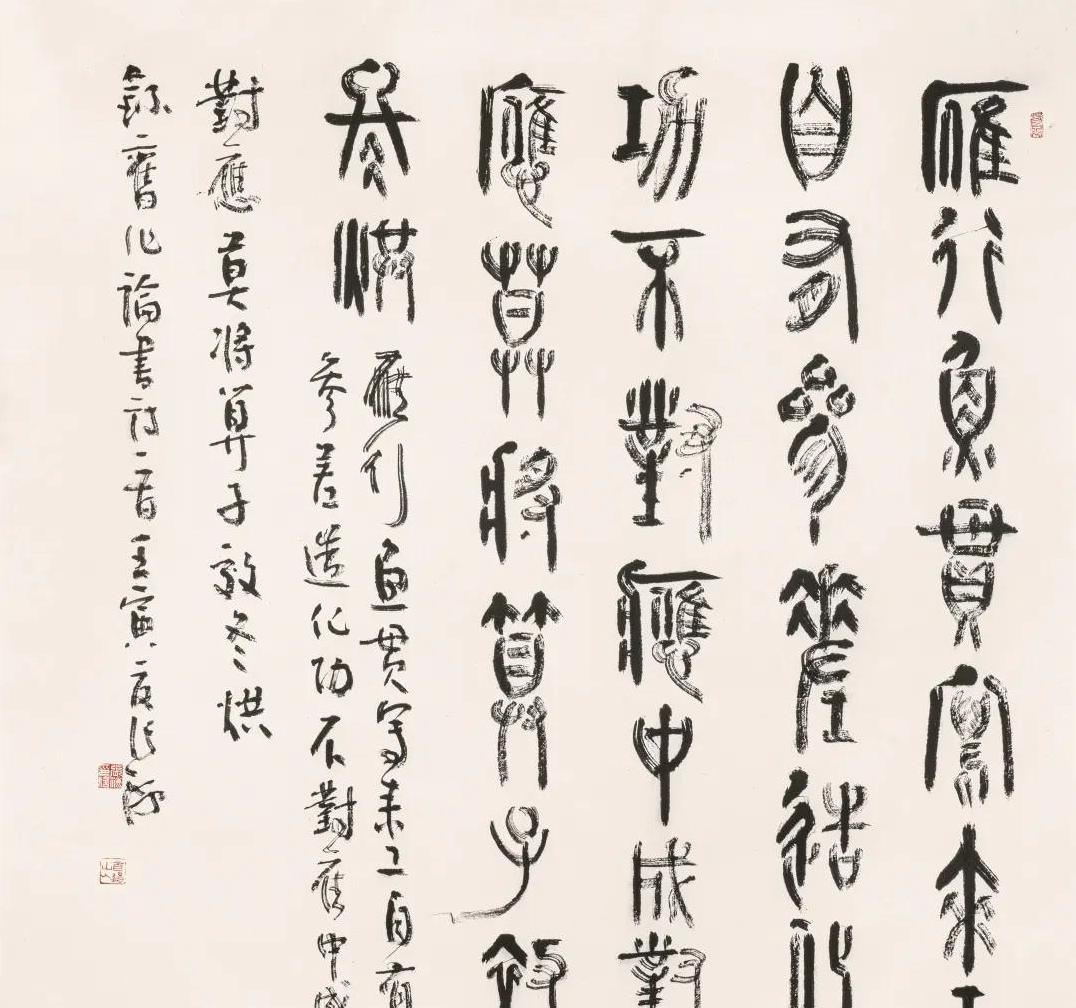 雁行魚貫寫來工
自有參差造化
功不對應中成對
應莫將算子效
冬烘
雁行魚貫寫來工自有
參差造化功不對應中成
對應莫將算子效冬烘
錄舊作論書詩一首壬寅夏張海